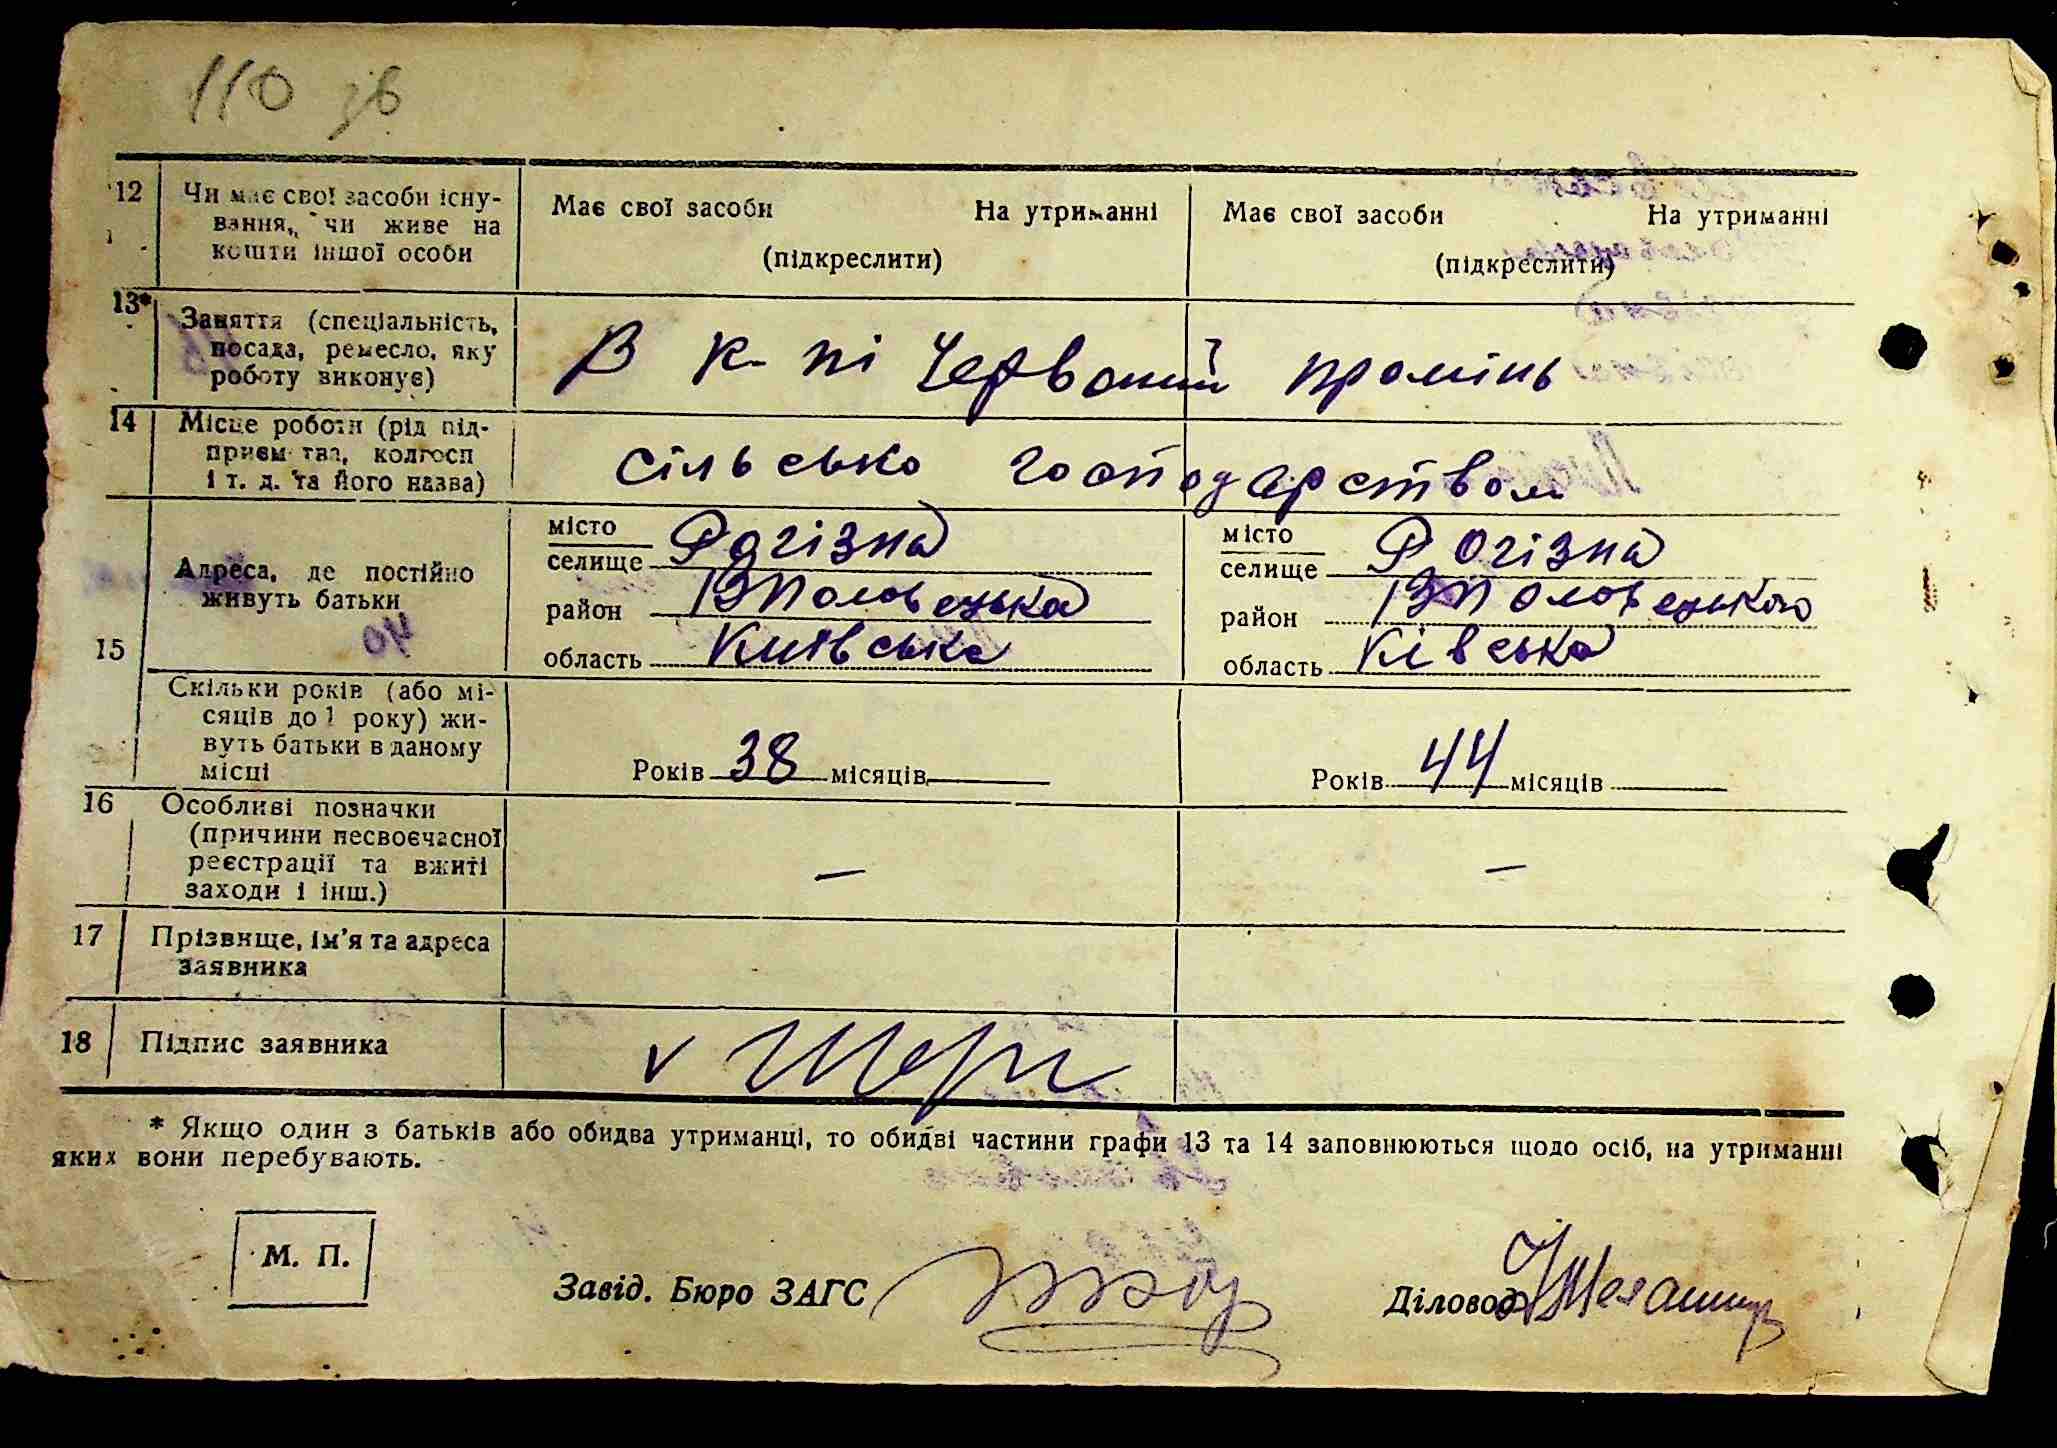 110 зв
12 Чи має свої засоби існу-
вання, чи живе на
кошти іншої особи
Має свої засоби На утриманні
(підкреслити)
Має свої засоби На утриманні
(підкреслити)
13* Заняття (спеціальність,
посада, ремесло, яку
роботу виконує)
В к-пі Червоний промінь
14 Місце роботи (рід під-
приємства, колгосп
і т. д. та його назва)
сільсько господарством
15 Адреса, де постійно
живуть батьки
місто
селище Рогізна
район ВПоловецька
область Київська
місто
селище Рогізна
район ВПоловецького
область Ківська
Скільки років (або мі-
сяців до 1 року) жи-
вуть батьки в даному
місці
Років 38 місяців
Років 44 місяців
16 Особливі позначки
(причини несвоєчасної
реєстрації та вжиті
заходи і інш.)
—
—
17 Прізвище, ім'я та адреса
заявника
18 Підпис заявника
* Якщо один з батьків або обидва утриманці, то обидві частини графи 13 та 14 заповнюються щодо осіб, на утриманні
яких вони перебувають.
М. П.
Завід. Бюро ЗАГС
Діловод